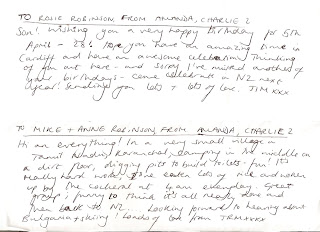 TO ROSIE ROBINSON FROM AMANDA, CHARLIE 2
Son! Wishing you a very happy birthday for 5th
April - 28! Hope you have an amazing time in
Cardiff and have an awesome celebration thinking
of you out here - and sorry I've missed another of
your birthdays - come celebrate in NZ next
year! Sending you lots + lots of love. TIM XXX
TO MIKE + ANNE ROBINSON FROM AMANDA, CHARLIE 2
Hi an everything! In a very small village in
Tamil Nadu, camping in the middle on
a dirt floor, digging pits to build toilets - fun! It's
really hard work, eaten lots of rice and woken
up by the cockerel at 4am everyday. Great
group, funny to think it's all nearly done and
then back to NZ... Looking forward to hearing about
Bulgaria + skiing! Loads of love from TIM XXXX